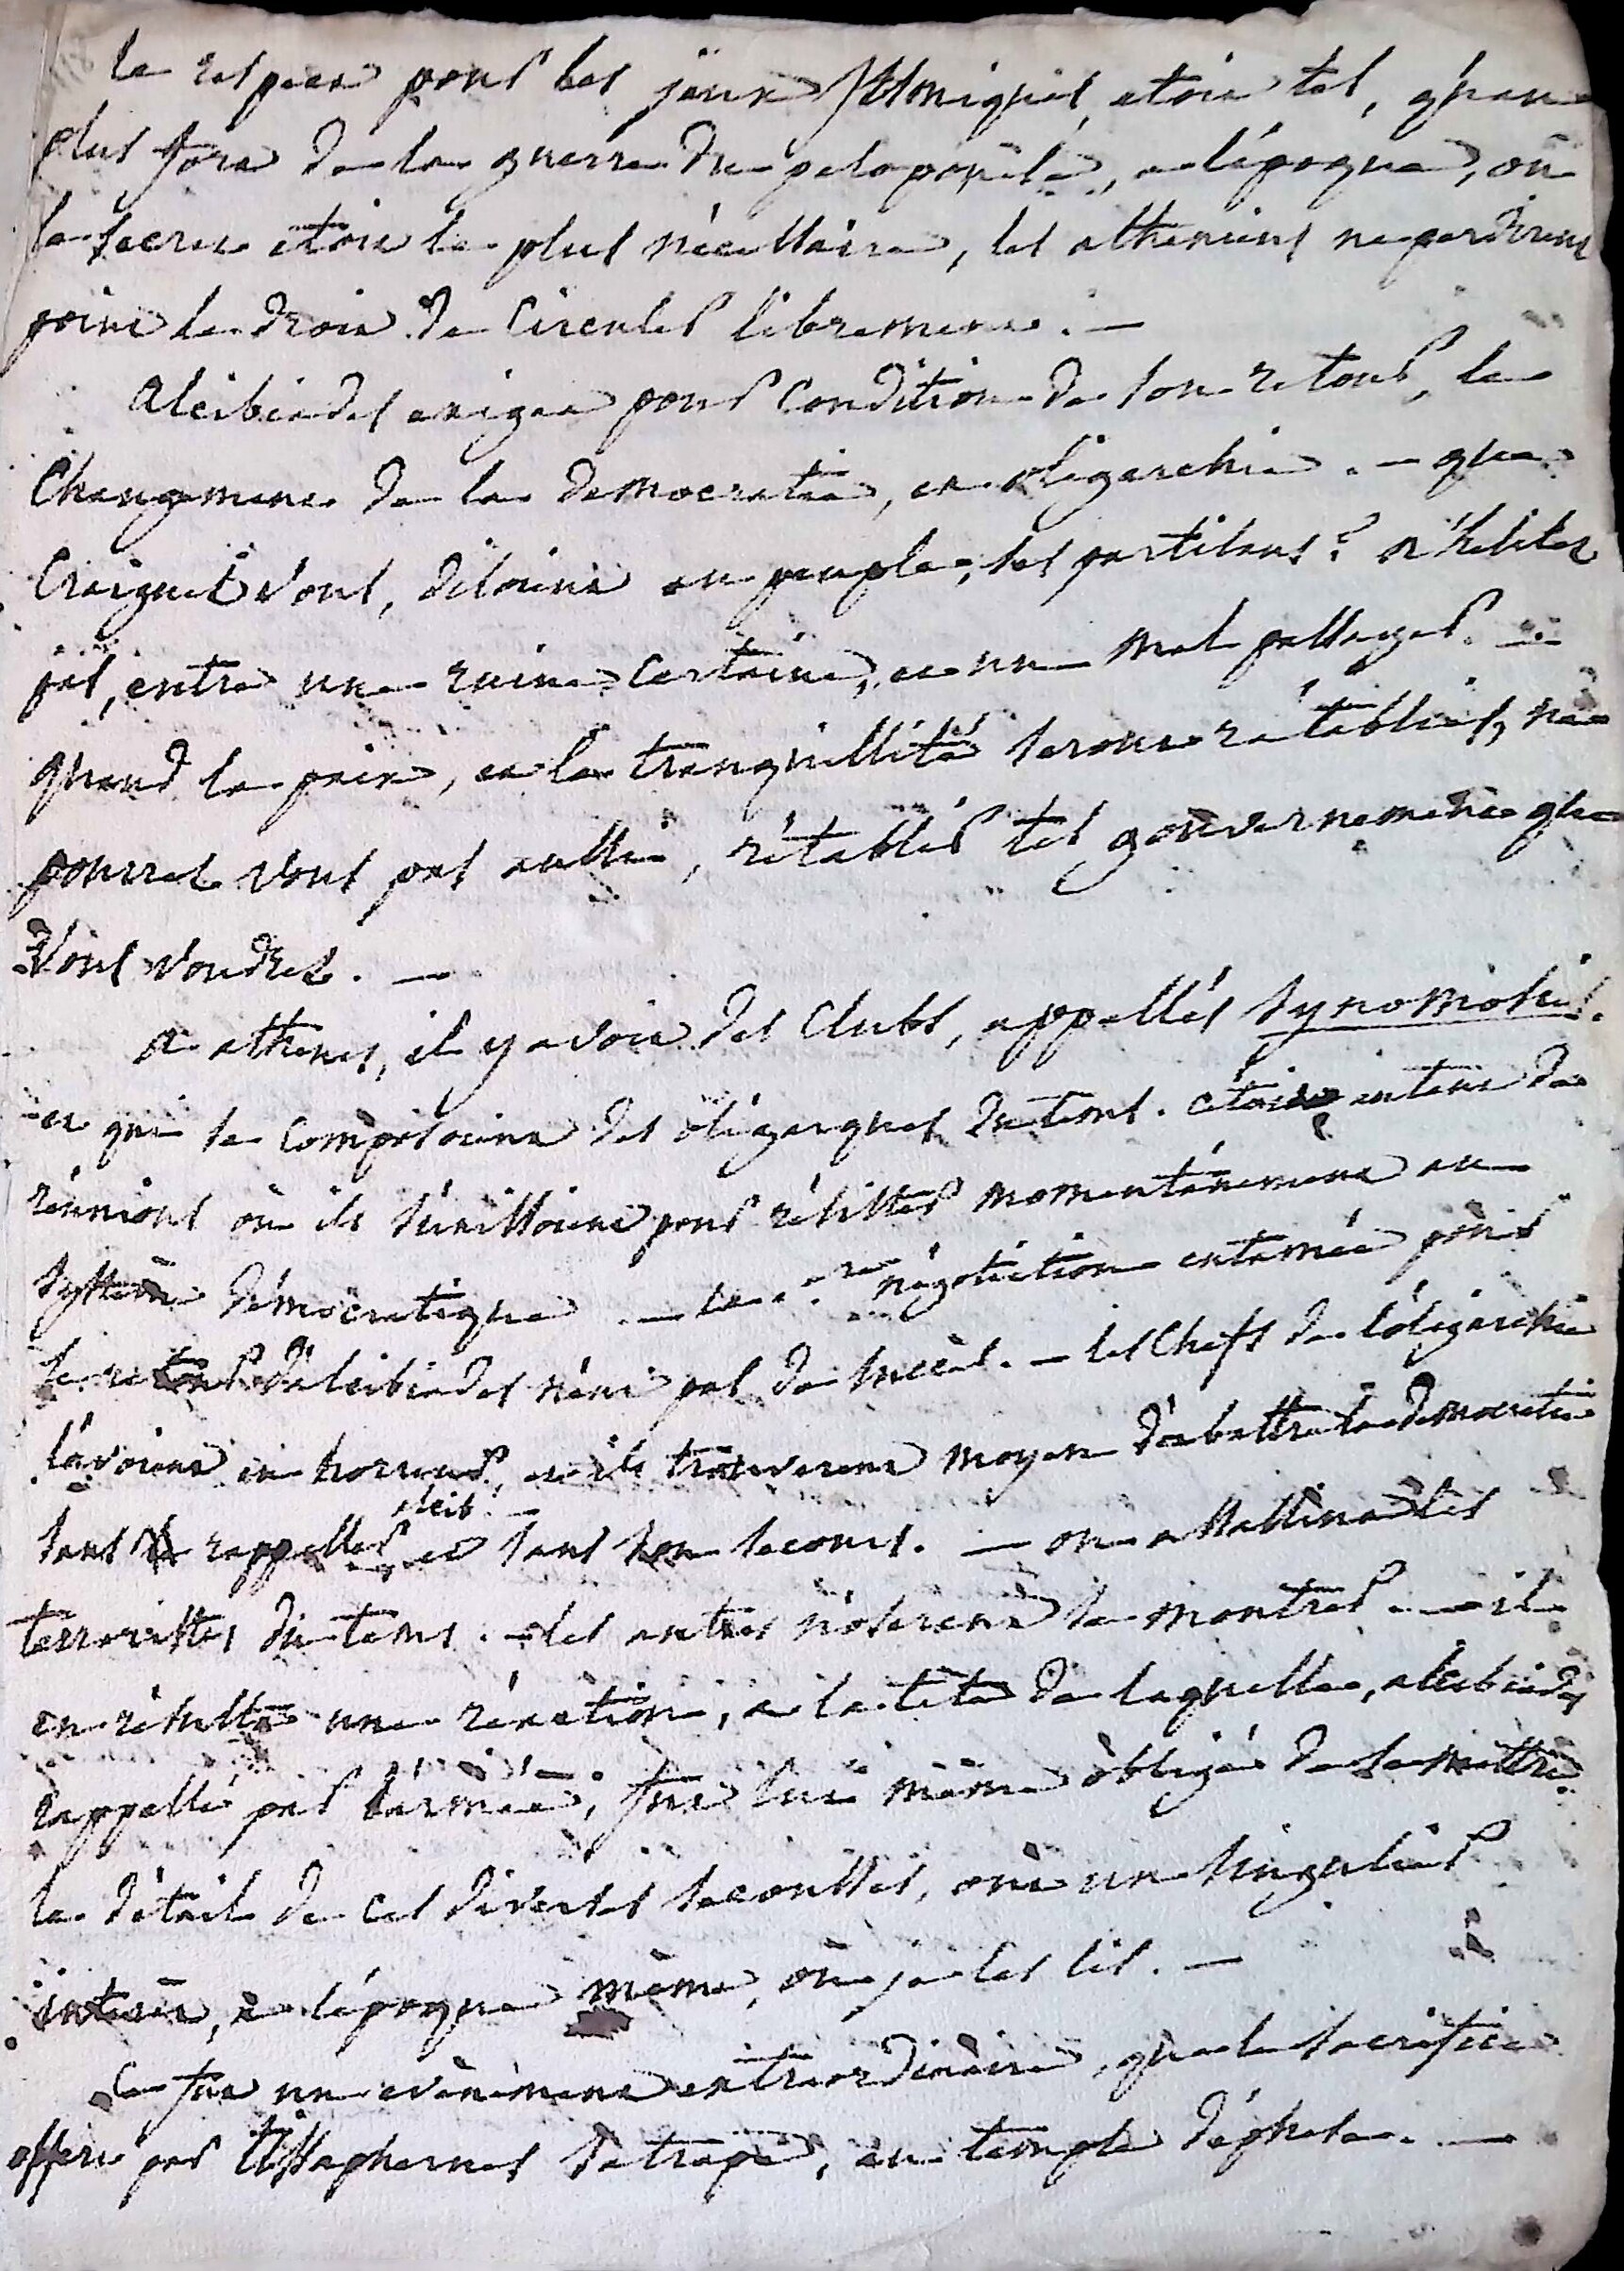 le respect pour les jeux Isthmiques, etoit tel, qu'au
plus fort de la guerre du peloponèse, a l'époque, où
le secret etoit le plus nécessaire, les atheniens ne perdirent
point le droit de circuler librement. —
Alcibiades exigea pour condition de son retour, le
changement de la democratie, en oligarchie. — que
craignez vous, disoient au peuple, ses partisans? n'hésitez
pas, entre une ruine certaine, et un mal passager. —
quand la paix, et la tranquillité seront rétablies, ne
pourrez vous pas aussi, rétablir tel gouvernement que
vous voudrez. —
a athenes, il y avoit des clubs, appellés synomosies.
et qui se composoient des oligarques du tems. c'étoit autant de
réunions où ils s'unissoient pour résister momentanément au
système démocratique. — la négotiation entamée pour
le retour d'alcibiades n'eut pas de succès. — les chefs de l'oligarchie
l'avoient en horreur, et ils trouverent moyen d'abattre la democratie
sans rappeller alcib. et sans son secours. — on assassina les
terroristes du tems. — les autres n'oserent se montrer. — il
en résulta une réaction, a la tête de laquelle, alcibiades
rappellé par l'armée, fut lui même obligé de se mettre.
le détail de ces diverses secousses, ont un singulier
intérêt, à l'époque même, où je les lis. —
ce fut un evènement extraordinaire, que le sacrifice
offert par Tissaphernes satrape, au temple d'éphese. —